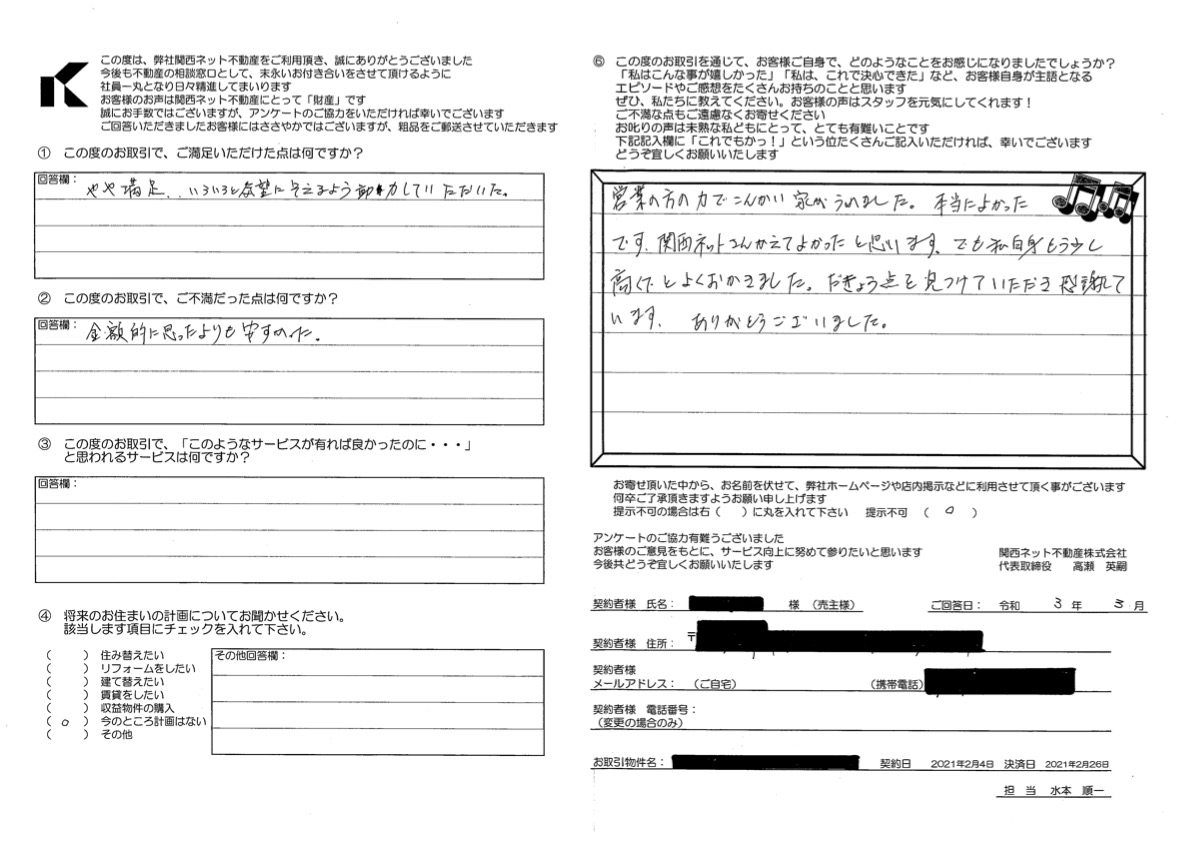 この度は、弊社関西ネット不動産をご利用頂き、誠にありがとうございました
今後も不動産の相談窓口として、末永いお付き合いをさせて頂けるように
社員一丸となり日々精進してまいります
お客様のお声は関西ネット不動産にとって「財産」です
誠にお手数ではございますが、アンケートのご協力をいただければ幸いでございます
ご回答いただきましたお客様にはささやかではございますが、粗品をご郵送させていただきます
① この度のお取引で、ご満足いただけた点は何ですか？
回答欄：
やや満足、いろいろと希望にそえるよう努力していただいた。
② この度のお取引で、ご不満だった点は何ですか？
回答欄：
金額的に思ったよりも安すかった。
③ この度のお取引で、「このようなサービスが有れば良かったのに・・・」
と思われるサービスは何ですか？
回答欄：
④ 将来のお住まいの計画についてお聞かせください。
該当します項目にチェックを入れて下さい。
（　　）住み替えたい
（　　）リフォームをしたい
（　　）建て替えたい
（　　）賃貸をしたい
（　　）収益物件の購入
（ ○ ）今のところ計画はない
（　　）その他
その他回答欄：
⑥ この度のお取引を通じて、お客様ご自身で、どのようなことをお感じになりましたでしょうか？
「私はこんな事が嬉しかった」「私は、これで決心できた」など、お客様自身が主語となる
エピソードやご感想をたくさんお持ちのことと思います
ぜひ、私たちに教えてください。お客様の声はスタッフを元気にしてくれます！
ご不満な点もご遠慮なくお寄せください
お叱りの声は未熟な私どもにとって、とても有難いことです
下記記入欄に「これでもかっ！」という位たくさんご記入いただければ、幸いでございます
どうぞ宜しくお願いいたします
営業の方の力でこんかい家がうれました。本当によかった
です、関西ネットさんかえてよかったと思います、でも私自身もう少し
高くとよくおかきました。だきょう点を見つけていただき感謝して
います、ありがとうございました。
お寄せ頂いた中から、お名前を伏せて、弊社ホームページや店内掲示などに利用させて頂く事がございます
何卒ご了承頂きますようお願い申し上げます
提示不可の場合は右（　　）に丸を入れて下さい　提示不可　（ ○ ）
アンケートのご協力有難うございました
お客様のご意見をもとに、サービス向上に努めて参りたいと思います
今後共どうぞ宜しくお願いいたします
関西ネット不動産株式会社
代表取締役　高瀬　英嗣
契約者様　氏名：　様　（売主様）　ご回答日：　令和　3 年　3 月
契約者様　住所：　〒
契約者様
メールアドレス：　（ご自宅）　（携帯電話）
契約者様　電話番号：
（変更の場合のみ）
お取引物件名：　契約日　2021年2月4日　決済日　2021年2月26日
担　当　水本　順一